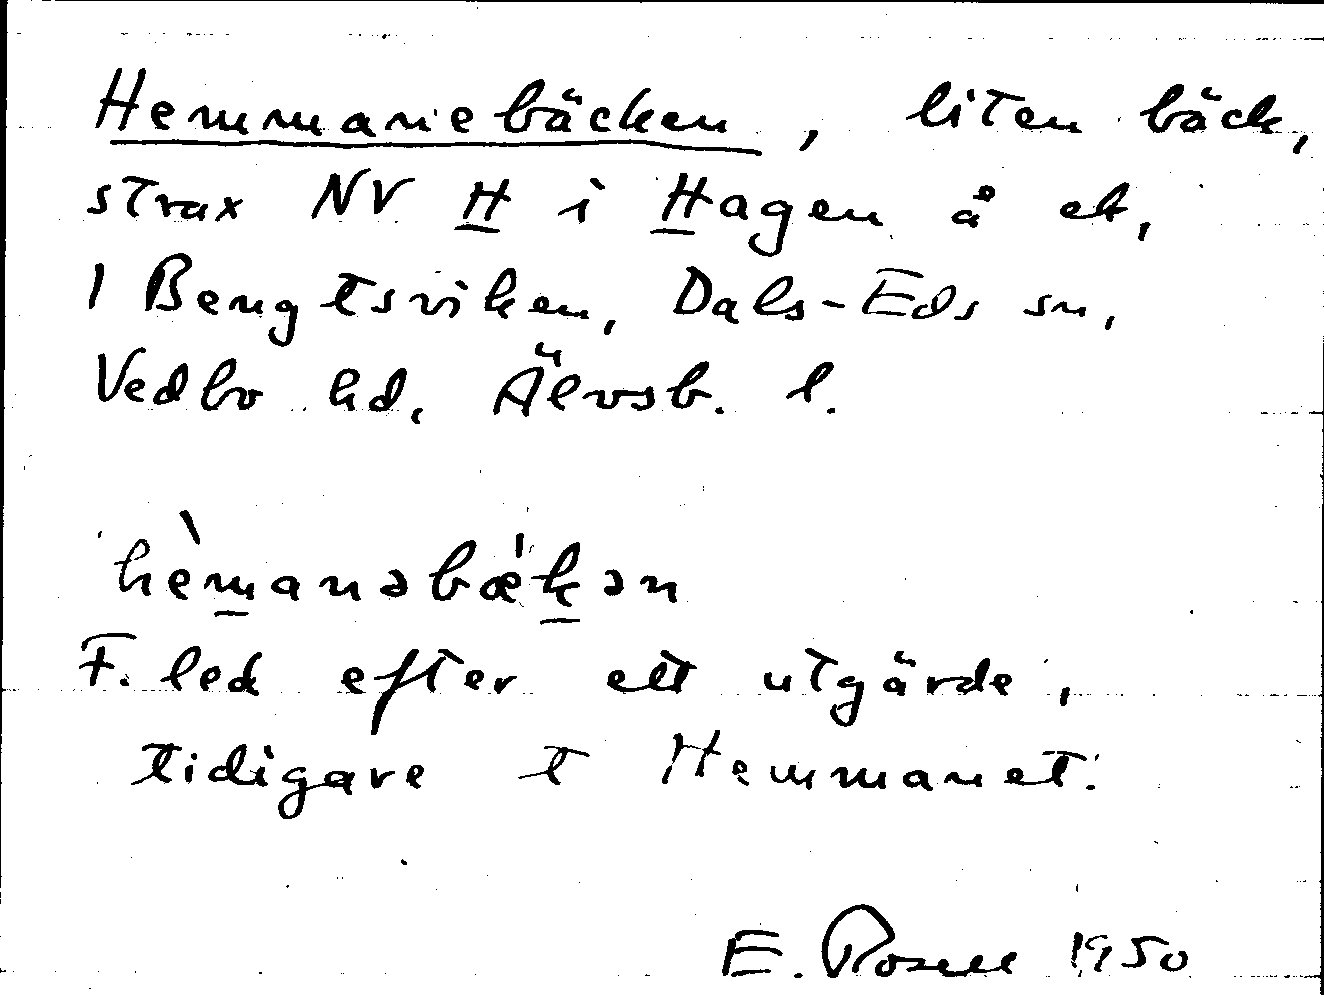 Hemmanebäcken, liten bäck,
strax NV H i Hagen å ek,
1 Bengtsviken, Dals-Eds sn,
Vedbo hd, Älvsb. l.
hèmanəbæ'kən
F. led efter ett utgärde,
tidigare t Hemmanet.
E. Rosell 1950